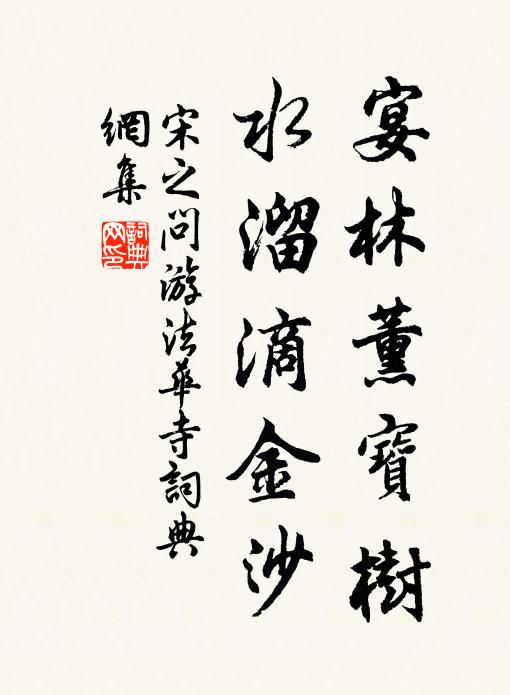 宴林薰寶樹
水溜滴金沙
宋之问游法華寺詞典
網集
詞典
网印